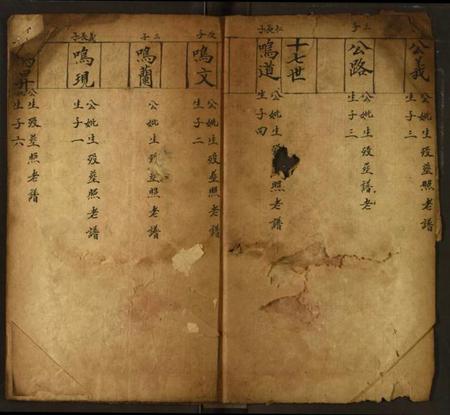 公義
公妣生歿塟照老譜
生子三
三子
公路
公妣生歿塟照譜老
生子三
十七世
松長子
鳴道
公妣生歿塟照老譜
生子四
次子
鳴文
公妣生歿塟照老譜
生子二
三子
鳴蘭
公妣生歿塟照老譜
義長子
鳴現
公妣生歿塟照老譜
生子一
公生歿塟照老譜
生子六